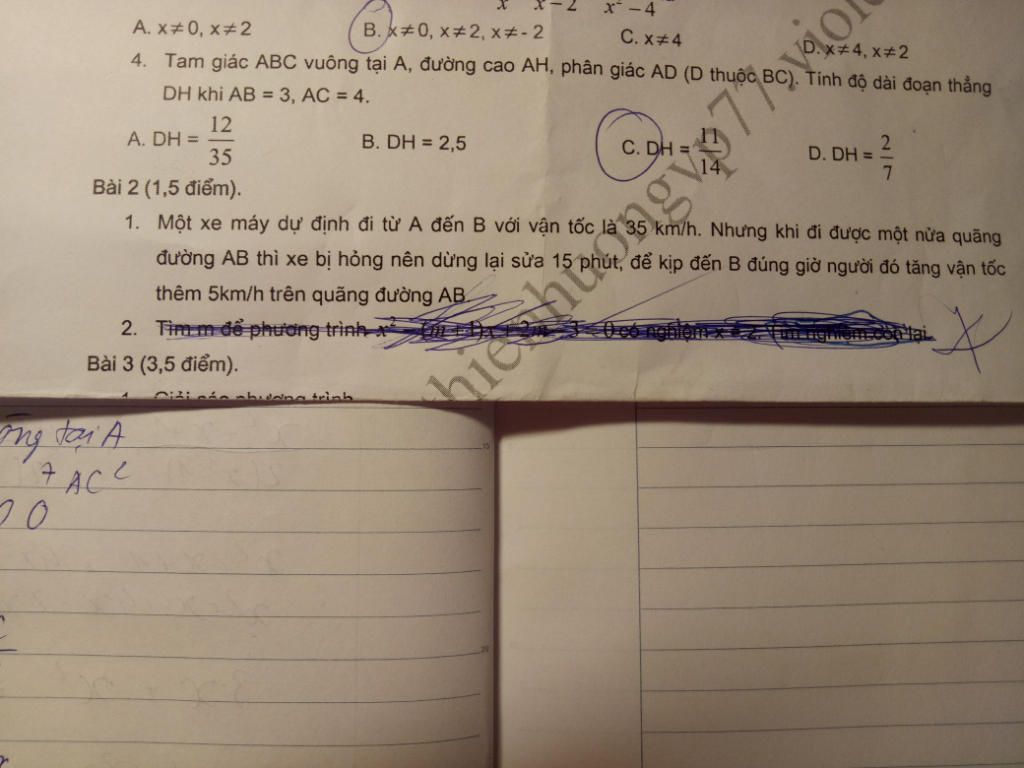 x x – 2 x² – 4
A. x≠0, x≠2 B. x≠0, x≠2, x≠- 2 C. x≠4 D. x≠4, x≠2
4. Tam giác ABC vuông tại A, đường cao AH, phân giác AD (D thuộc BC). Tính độ dài đoạn thẳng
DH khi AB = 3, AC = 4.
A. DH = 12/35 B. DH = 2,5 C. DH = 11/14 D. DH = 2/7
Bài 2 (1,5 điểm).
1. Một xe máy dự định đi từ A đến B với vận tốc là 35 km/h. Nhưng khi đi được một nửa quãng
đường AB thì xe bị hỏng nên dừng lại sửa 15 phút, để kịp đến B đúng giờ người đó tăng vận tốc
thêm 5km/h trên quãng đường AB.
2. Tìm m để phương trình x² có nghiệm x = 2. Tìm nghiệm còn lại.
Bài 3 (3,5 điểm).
1. Giải các phương trình
thienhuongvp77.viole
ông tại A
AC²
0